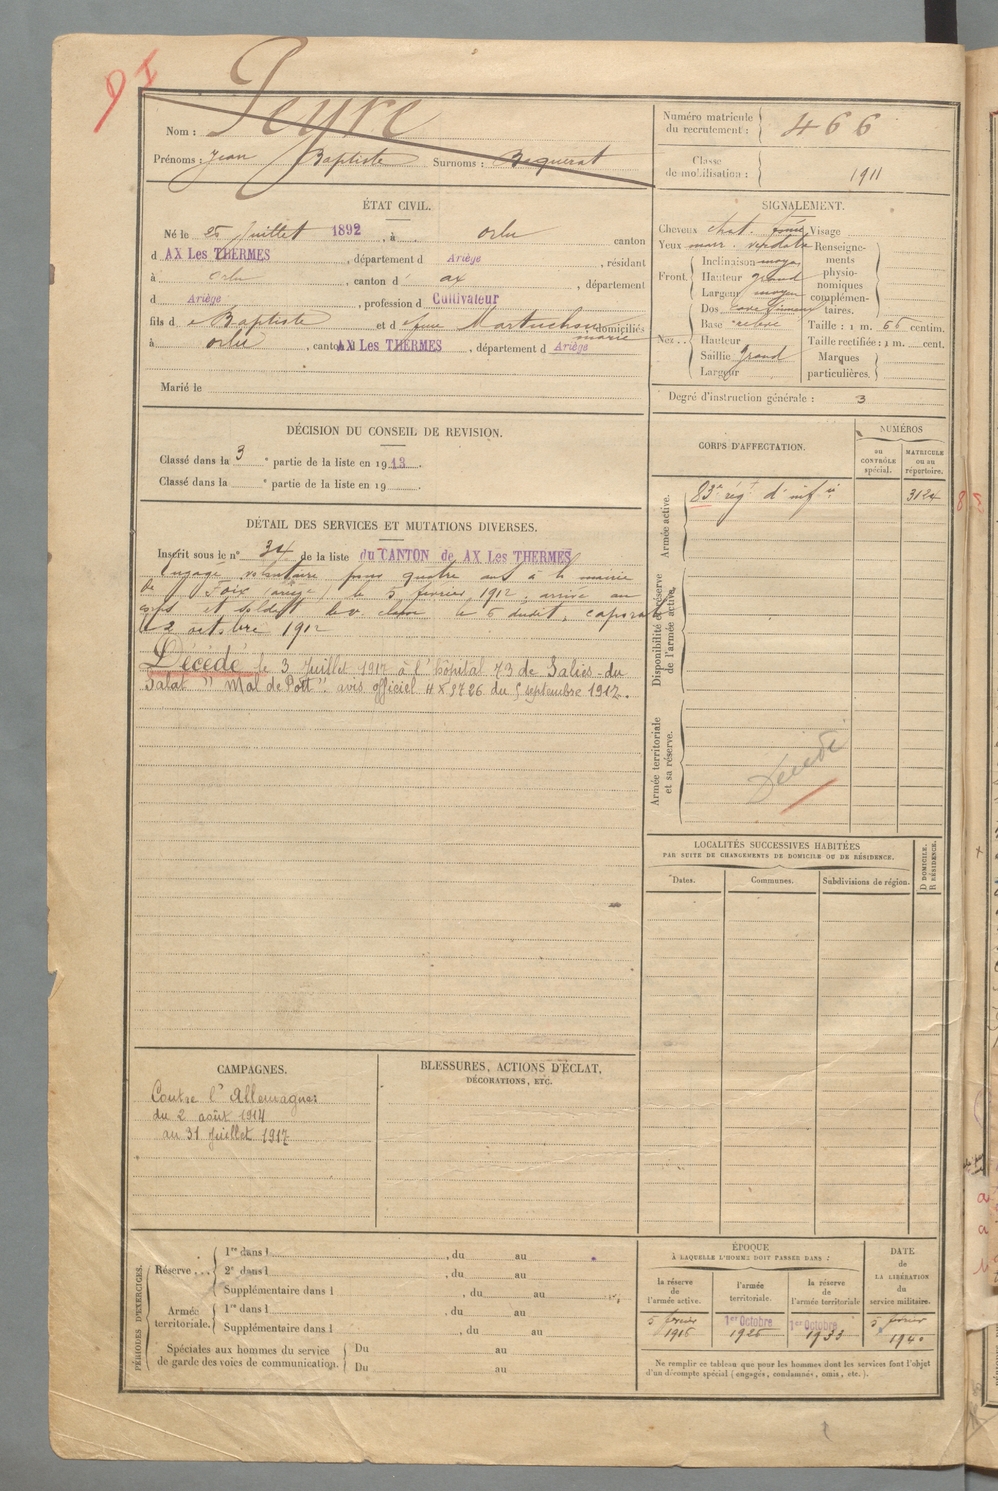 9I
Nom : Peyre
Prénoms : Jean Baptiste Surnoms : Baquerat
Numéro matricule
du recrutement : 466
Classe
de mobilisation : 1911
ÉTAT CIVIL.
Né le 25 Juillet 1892, à Orlu canton
d AX Les THERMES, département d Ariège, résidant
à Orlu, canton d ax, département
d Ariège, profession d Cultivateur
fils d e Baptiste et d domiciliés
marie
à Orlu, canton AX Les THERMES, département d Ariège
Marié le
SIGNALEMENT.
Cheveux chat. foncé Visage
Yeux marr. verdatr Renseigne-
Front Inclinaison moyen ments
Hauteur grand physio-
Largeur moyen nomiques
complémen-
Dos taires.
Nez... Base Taille : 1 m. 66 centim.
Hauteur Taille rectifiée : 1 m. cent.
Saillie grand Marques
Largeur particulières.
Degré d'instruction générale : 3
DÉCISION DU CONSEIL DE REVISION.
Classé dans la 3e partie de la liste en 1913.
Classé dans la e partie de la liste en 19
CORPS D'AFFECTATION.
NUMÉROS
au
CONTRÔLE
spécial.
MATRICULE
ou au
répertoire.
Armée active.
83e rég t d'inf ie 3124
Disponibilité et réserve
de l'armée active.
Armée territoriale
et sa réserve.
Décédé
DÉTAIL DES SERVICES ET MUTATIONS DIVERSES.
Inscrit sous le n° 34 de la liste du CANTON de AX Les THERMES
Engagé volontaire pour quatre ans à la mairie
de Foix (ariège) le 5 février 1912, arrivé au
corps et soldat de 2e classe le 5 dudit, caporal
le 2 octobre 1912
Décédé le 3 Juillet 1917 à l'hôpital 73 de Salies-du
Salat "Mal de Pott". avis officiel H X 2726 du 5 septembre 1917.
LOCALITÉS SUCCESSIVES HABITÉES
PAR SUITE DE CHANGEMENTS DE DOMICILE OU DE RÉSIDENCE.
Dates.
Communes.
Subdivisions de région.
D DOMICILE.
R RÉSIDENCE.
CAMPAGNES.
Contre l'Allemagne:
du 2 août 1914
au 31 Juillet 1917
BLESSURES, ACTIONS D'ÉCLAT,
DÉCORATIONS, ETC.
PÉRIODES D'EXERCICES.
Réserve... 1re dans l , du au
2e dans l , du au
Supplémentaire dans l , du au
Armée 1re dans l , du au
territoriale. Supplémentaire dans l , du au
Spéciales aux hommes du service Du au
de garde des voies de communication. Du au
ÉPOQUE
À LAQUELLE L'HOMME DOIT PASSER DANS :
la réserve
de
l'armée active.
l'armée
territoriale.
la réserve
de
l'armée territoriale
DATE
de
LA LIBÉRATION
du
service militaire.
5 février 1er Octobre 1er Octobre 5 février
1915 1926 1933 1940
Ne remplir ce tableau que pour les hommes dont les services font l'objet
d'un décompte spécial (engagés, condamnés, omis, etc.).